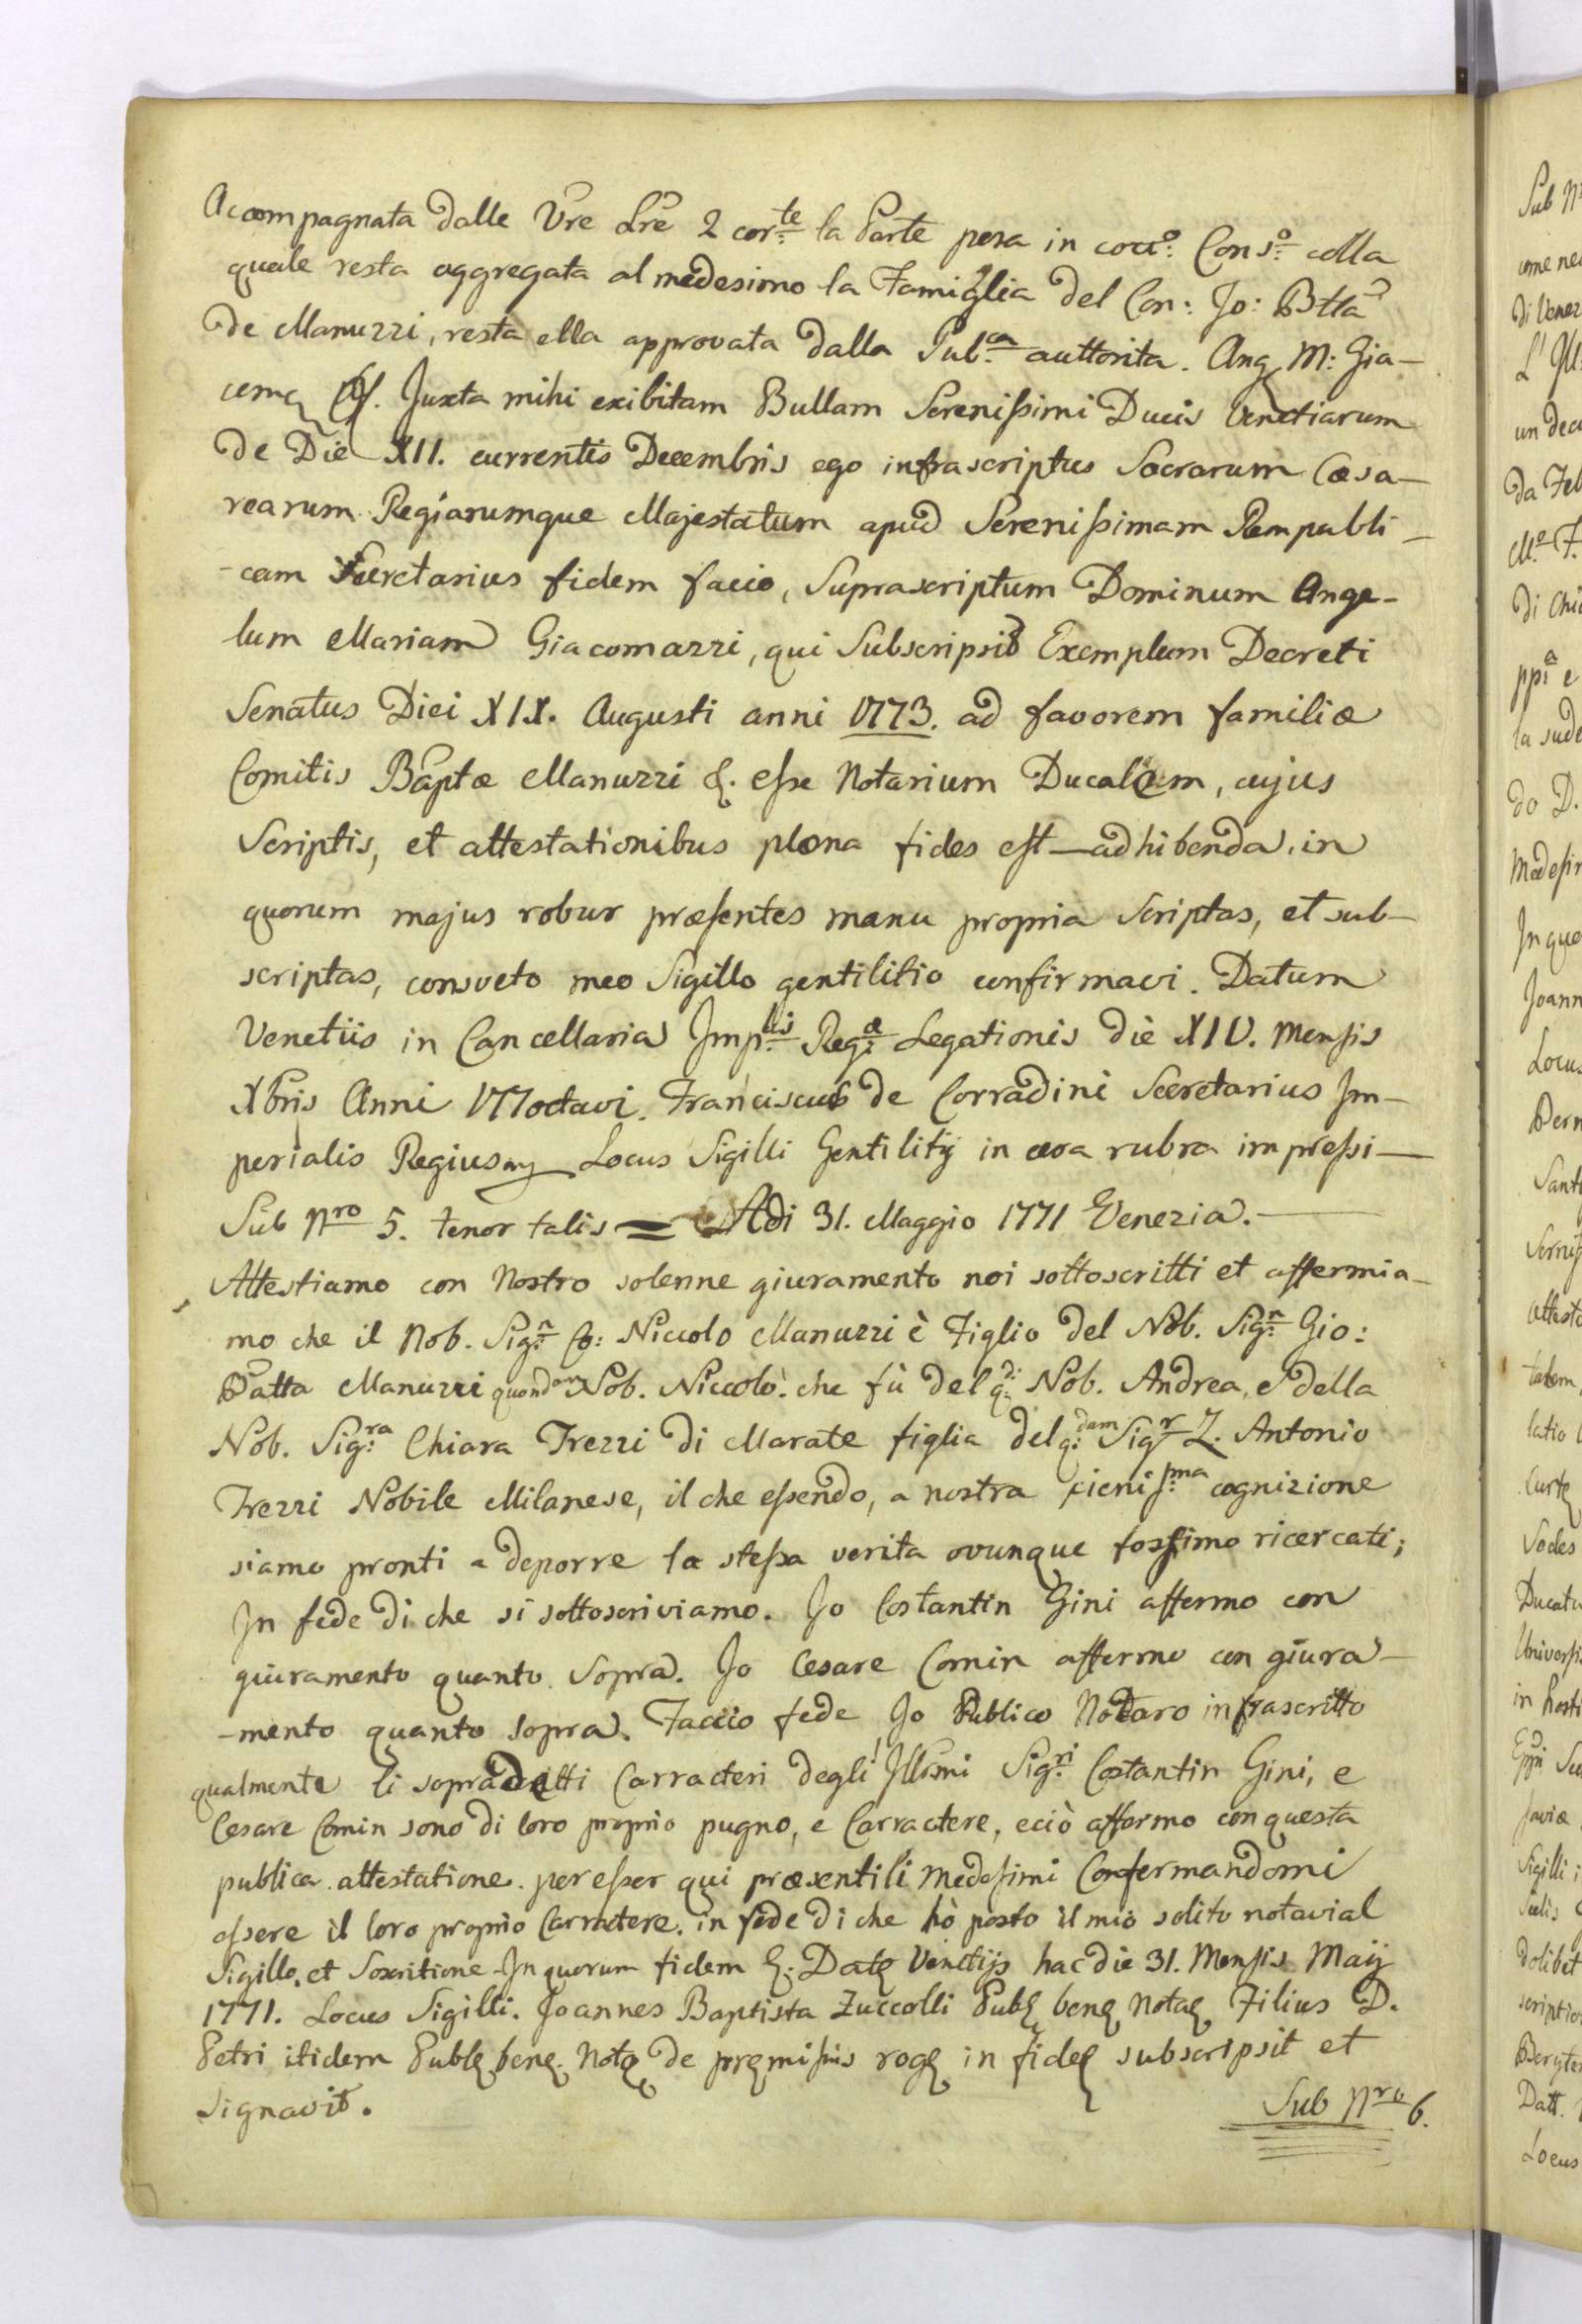 Accompagnata dalle Vre Lre 2 cor:te la Parte pesa in cocc:o Cons:o colla
quale resta aggregata al medesimo la Famiglia del Con: Jo: Btta
de Manuzzi, resta ella approvata dalla Pub:ca auttorita. Ang M: Gia-
com Juxta mihi exibitam Bullam Serenissimi Ducis Venetiarum
de Die XII. currentis Decembris ego infrascriptus Sacrarum Cæsa-
rearum Regiarumque Majestatum apud Serenissimam Rempubli-
-cam Secretarius fidem facio, Suprascriptum Dominum Ange-
lum Mariam Giacomazzi, qui Subscripsit Exemplum Decreti
Senatus Diei XIX. Augusti anni 1773. ad favorem familiæ
Comitis Baptæ Manuzzi &. esse Notarium Ducalem, cujus
Scriptis, et attestationibus plena fides est adhibenda, in
quorum majus robur præsentes manu propria Scriptas, et sub-
scriptas, consveto meo Sigillo gentilitio confirmavi. Datum
Venetiis in Cancellaria Imp:lis Reg:æ Legationis die XIV. Mensis
Xbris Anni 177octavi. Franciscus de Corradini Secretarius Im-
perialis Regius Locus Sigilli Gentilitij in cera rubra impressi
Sub Nro 5. tenor talis = Adi 31. Maggio 1771 Venezia.
Attestiamo con Nostro solenne giuramento noi sottoscritti et affermia-
mo che il Nob. Sig:r Co: Niccolo Manuzzi è Figlio del Nob. Sig:r Gio:
Batta Manuzzi quondam Nob. Niccolò. che fù del q:di Nob. Andrea, e della
Nob. Sig:ra Chiara Trezzi di Marate figlia del q:dam Sig:r Z. Antonio
Trezzi Nobile Milanese, il che essendo, a nostra pienis:ma cognizione
siamo pronti a deporre la stessa verita ovunque fossimo ricercati;
In fede di che si sottoscriviamo. Jo Costantin Gini affermo con
giuramento quanto Sopra. Jo Cesare Comin affermo con giura-
-mento quanto sopra. Faccio fede Jo Publico Nodaro infrascritto
qualmente li sopradetti Carracteri degli Illsmi Sig:ri Costantin Gini, e
Cesare Comin sono di loro proprio pugno, e Carractere, eciò affermo con questa
publica attestatione. peresser qui præsentili Medesimi Confermandomi
essere il loro proprio Carractere. in fede di che hò posto il mio solito notarial
Sigillo, et Soscritione. In quorum fidem &. Dat Venetijs hac die 31. Mensis Maij
1771. Locus Sigilli. Joannes Baptista Zuccolli Publ. Ven. Not. Filius D.
Petri itidem Publ. Ven. Not. de premissis rog in fide subscripsit et
Signavit.
Sub Nro 6.